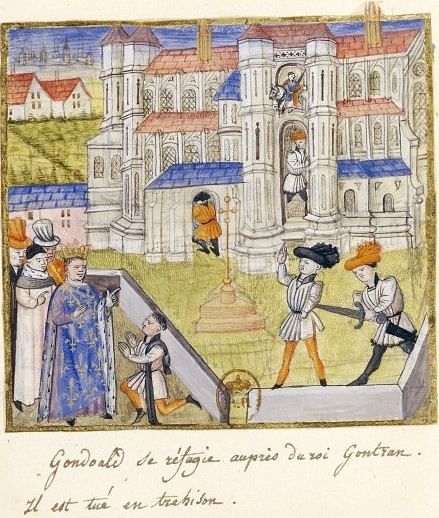 Gondoald se réfugie auprès du roi Gontran.
Il est tué en trahison.